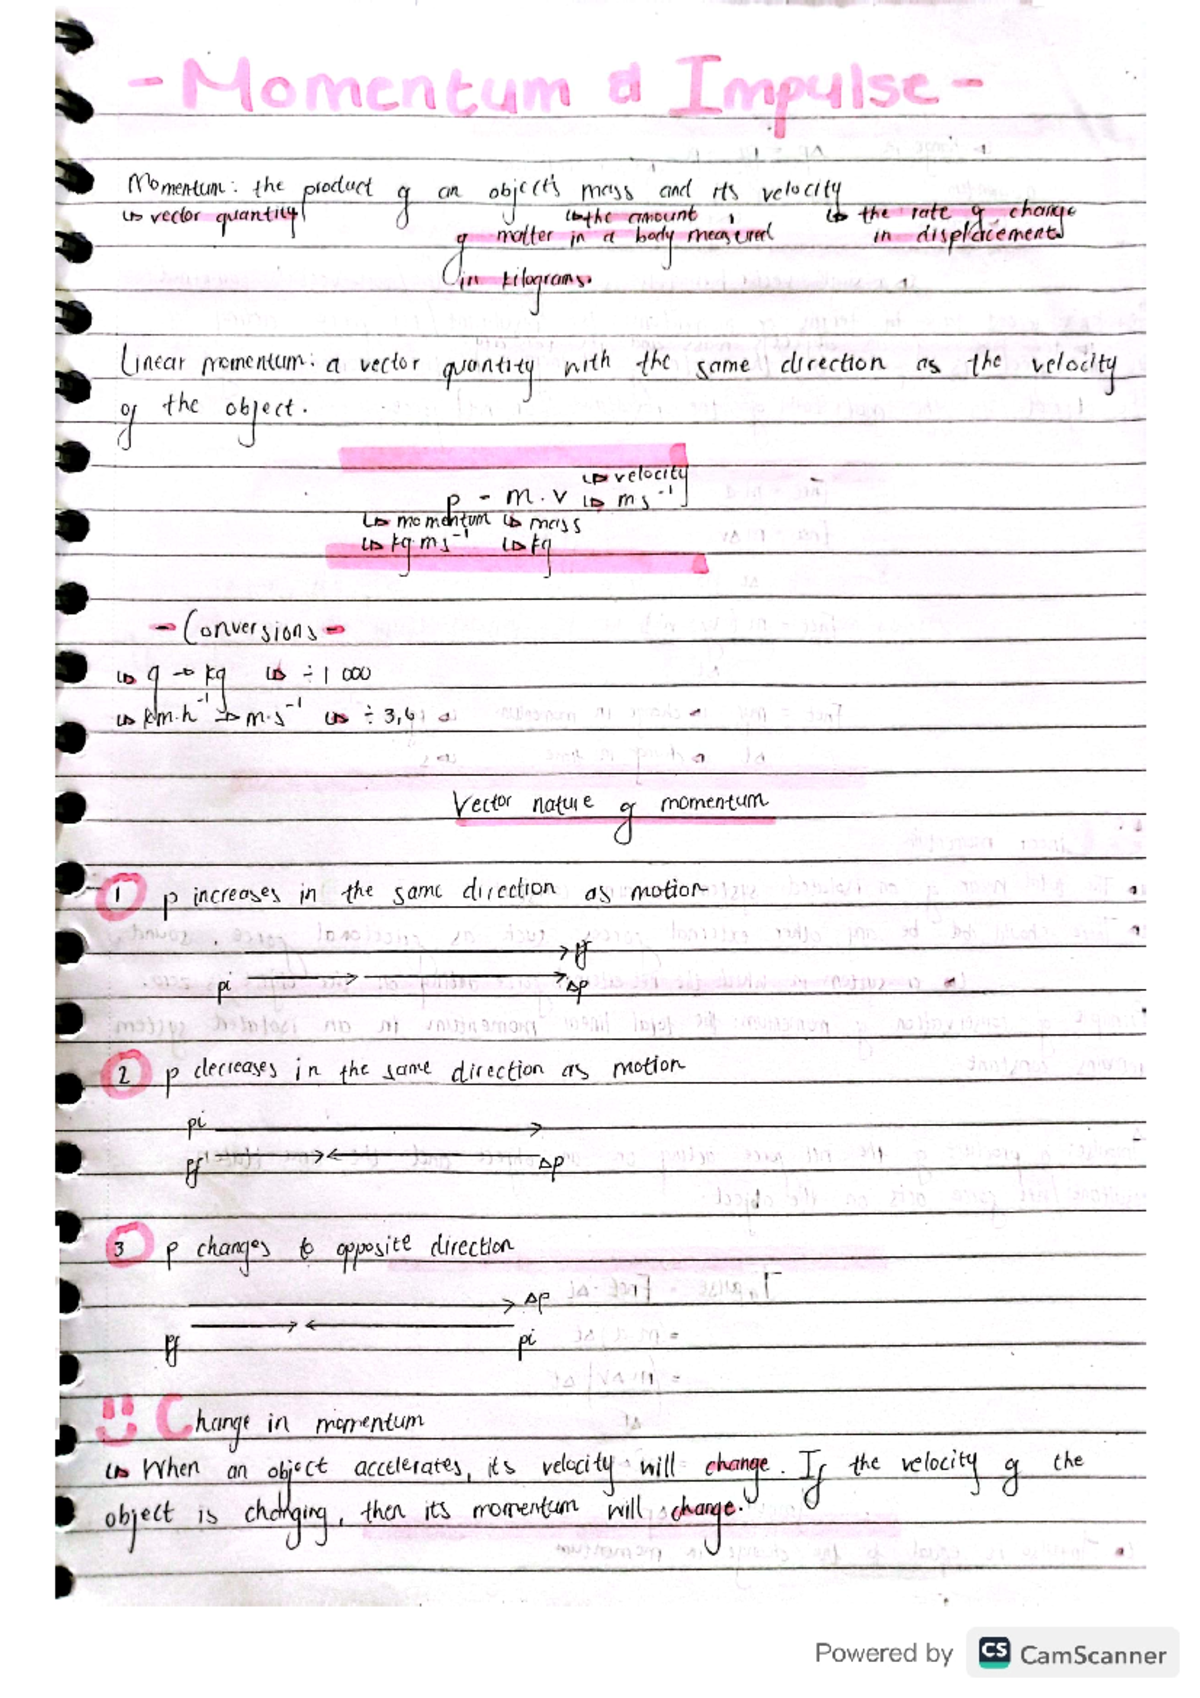 - Momentum & Impulse -
Momentum: the product of an object's mass and its velocity
↳ vector quantity ↳ the amount ↳ the rate of change
of matter in a body measured in displacement
in kilograms.
Linear momentum: a vector quantity with the same direction as the velocity
of the object.
↳ velocity
p = m . v ↳ m s⁻¹
↳ momentum ↳ mass
↳ kg m s⁻¹ ↳ kg
- Conversions -
↳ g → kg ↳ ÷ 1 000
↳ km.h⁻¹ → m.s⁻¹ ↳ ÷ 3,6
Vector nature of momentum
1 p increases in the same direction as motion
pf
pi Δp
2 p decreases in the same direction as motion
pi
pf Δp
3 p changes to opposite direction
Δp
pf pi
Change in momentum
↳ When an object accelerates, its velocity will change. If the velocity of the
object is changing, then its momentum will change.
Powered by CS CamScanner